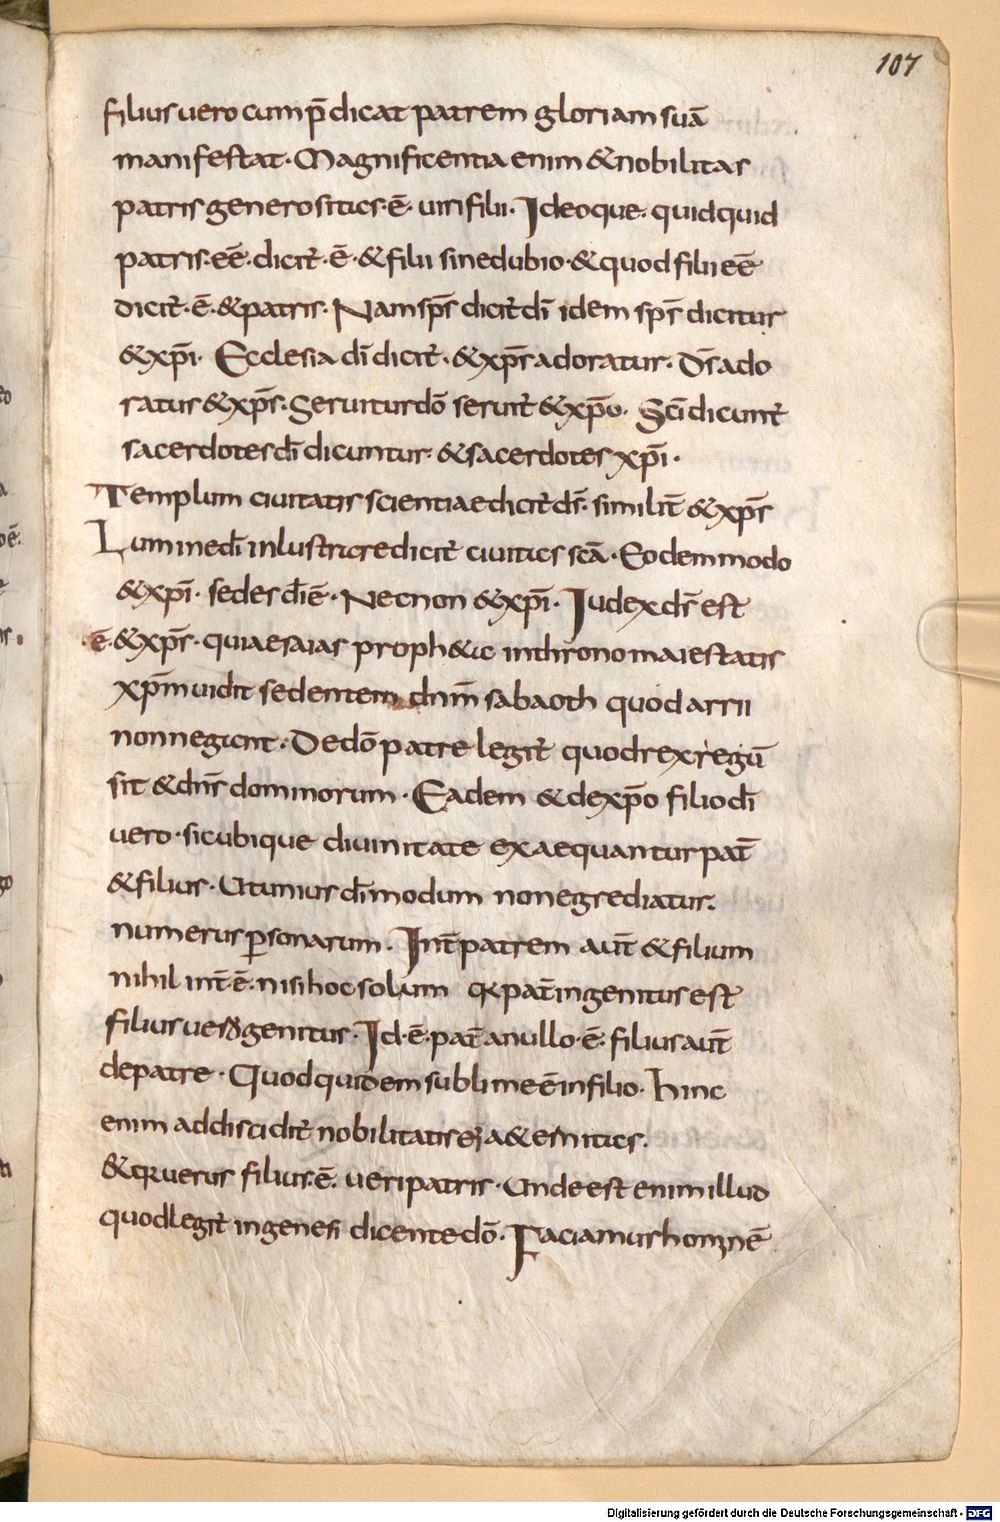 107
filius uero cum p̄dicat patrem gloriam suā
manifestat· Magnificentia enim &nobilitas
patris generositas·ē· uiri filii· Ideoque· quidquid
patris·eē·dicit̄·ē·&filii sinedubio·&quod filii eē
dicit̄·ē·&patris· Nam sp̄s dicit̄ dī idem sp̄s dicitur
&xp̄i· Ecclesia dī dicit̄·&xp̄s adoratur· Ds̄ ado
ratur &xp̄s· Seruitur dō seruit̄ &xp̄o· Sc̄i dicunt̄
sacerdotes dī dicuntur· &sacerdotes xp̄i·
Templum ciuitatis scientiae dicit̄ ds̄· similit̄ &xp̄s
Lumine dī inlustrare dicit̄ ciuitas sc̄a· Eodem modo
&xp̄i· sedes dī ē· Necnon &xp̄i· Iudex ds̄ est
·ē·&xp̄s· quia esaias proph&a in throno maiestatis
xp̄m uidit sedentem dn̄m sabaoth quod arrii
non negant· De dō patre legit̄ quod rex regū
sit &dn̄s dominorum· Eadem &de xp̄o filio dī
uero· sicubique diuinitate exaequantur pat̄
&filius· Ut unius dī modum non egrediatur·
numerus p̱sonarum· Int̄ patrem aut̄ &filium
nihil int̄·ē·nisi hoc solum q̱ pat̄ ingenitus est
filius uero genitus· Id·ē·pat̄ a nullo·ē· filius aut̄
de patre· Quod quidem sublime ē in filio· hinc
enim addiscidit̄ nobilitatis ei a&ernitas·
&q̱ uerus filius·ē· ueri patris· Unde est enim illud
quod legit̄ in genesi dicente dō· Faciamus hominē
Digitalisierung gefördert durch die Deutsche Forschungsgemeinschaft - DFG